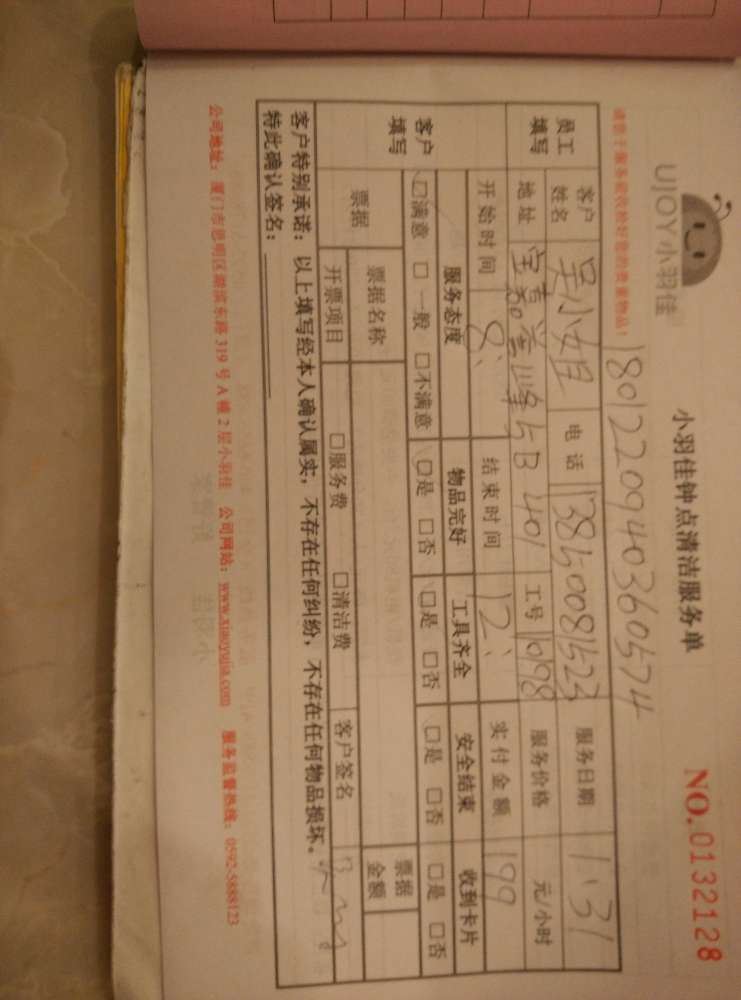 UJOY小羽佳
小羽佳钟点清洁服务单
NO.0132128
1801220940360574
请您于服务前收拾好您的贵重物品！
员工填写 客户姓名 吴小姐 电话 13850081523 服务日期 1.31
地址 401 工号 1098 服务价格 元/小时
开始时间 8: 结束时间 12: 实付金额 199
客户填写 服务态度 物品完好 工具齐全 安全结束 收到卡片
□满意 □一般 □不满意 □是 □否 □是 □否 □是 □否 □是 □否
票据 票据名称 票据金额
开票项目 □服务费 □清洁费 客户签名
客户特别承诺：以上填写经本人确认属实，不存在任何纠纷，不存在任何物品损坏。
特此确认签名：
公司地址：厦门市思明区湖滨东路319号A幢2层小羽佳 公司网站：www.xiaoyujia.com 服务监督热线：0592-5888123